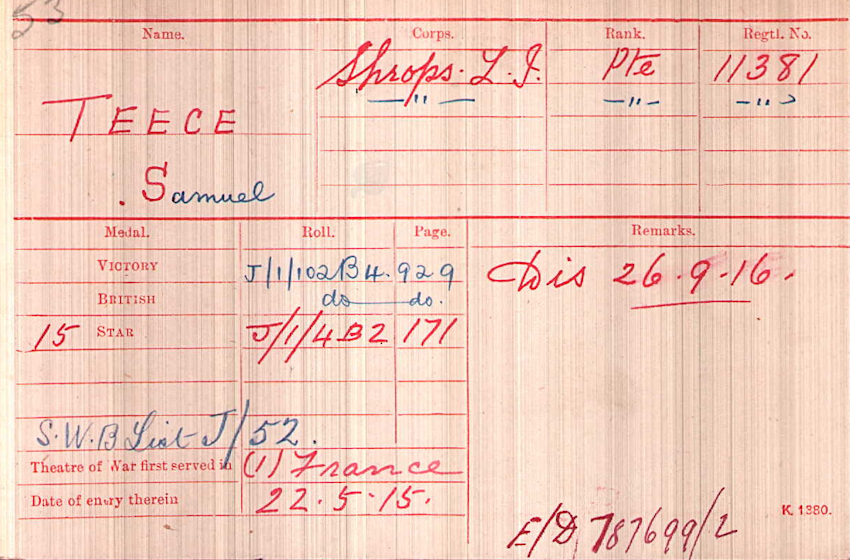 53
Name. Corps. Rank. Regtl. No.
TEECE Shrops. L. I. Pte 11381
—"— —"— —"—
. Samuel
Medal. Roll. Page. Remarks.
VICTORY J/1/102B4. 929 Dis 26.9.16.
BRITISH do—do.
15 STAR J/1/4B2 171
S.W.B List J/52.
Theatre of War first served in (1) France
Date of entry therein 22.5.15.
E/D 787699/2
K. 1380.